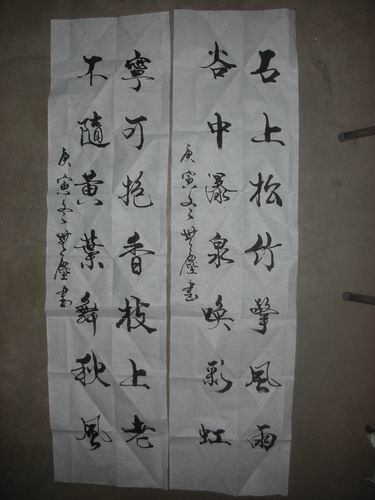 石上松竹擎風雨
谷中瀑泉喚彩虹
庚寅冬無塵書
寧可抱香枝上老
不隨黃葉舞秋風
庚寅冬無塵書